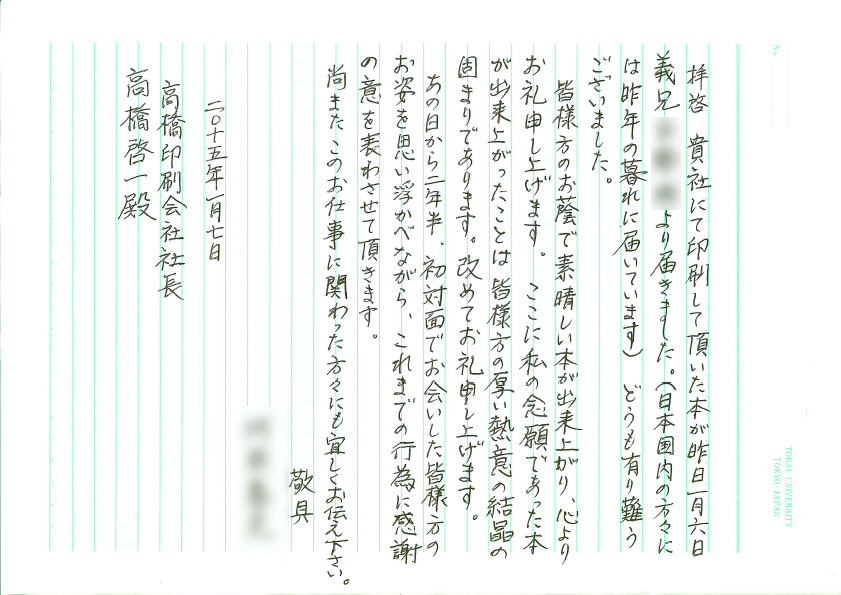 拝啓　貴社にて印刷して頂いた本が昨日一月六日
義兄　より届きました。（日本国内の方々に
は昨年の暮れに届いています）　どうも有り難う
ございました。
皆様方のお蔭で素晴しい本が出来上がり、心より
お礼申し上げます。　ここに私の念願であった本
が出来上がったことは　皆様方の厚い熱意の結晶の
固まりであります。改めてお礼申し上げます。
あの日から二年半、初対面でお会いした皆様方の
お姿を思い浮かべながら、これまでの行為に感謝
の意を表わさせて頂きます。
尚またこのお仕事に関わった方々にも宜しくお伝え下さい。
敬具
二〇十五年一月七日
高橋印刷会社社長
高橋啓一殿
No.
TOKAI UNIVERSITY
TOKYO JAPAN